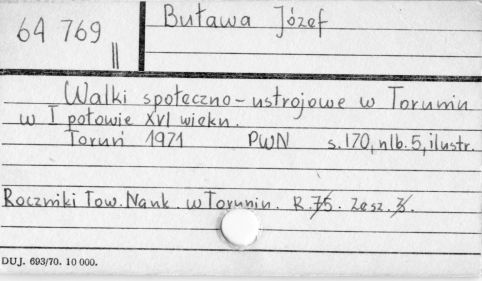 64 769
II
Buława Józef
Walki społeczno-ustrojowe w Toruniu
w I połowie XVI wieku.
Toruń 1971 PWN s.170, nlb.5, ilustr.
Roczniki Tow. Nauk. w Toruniu. R.75. Zesz.3.
DUJ. 693/70. 10 000.